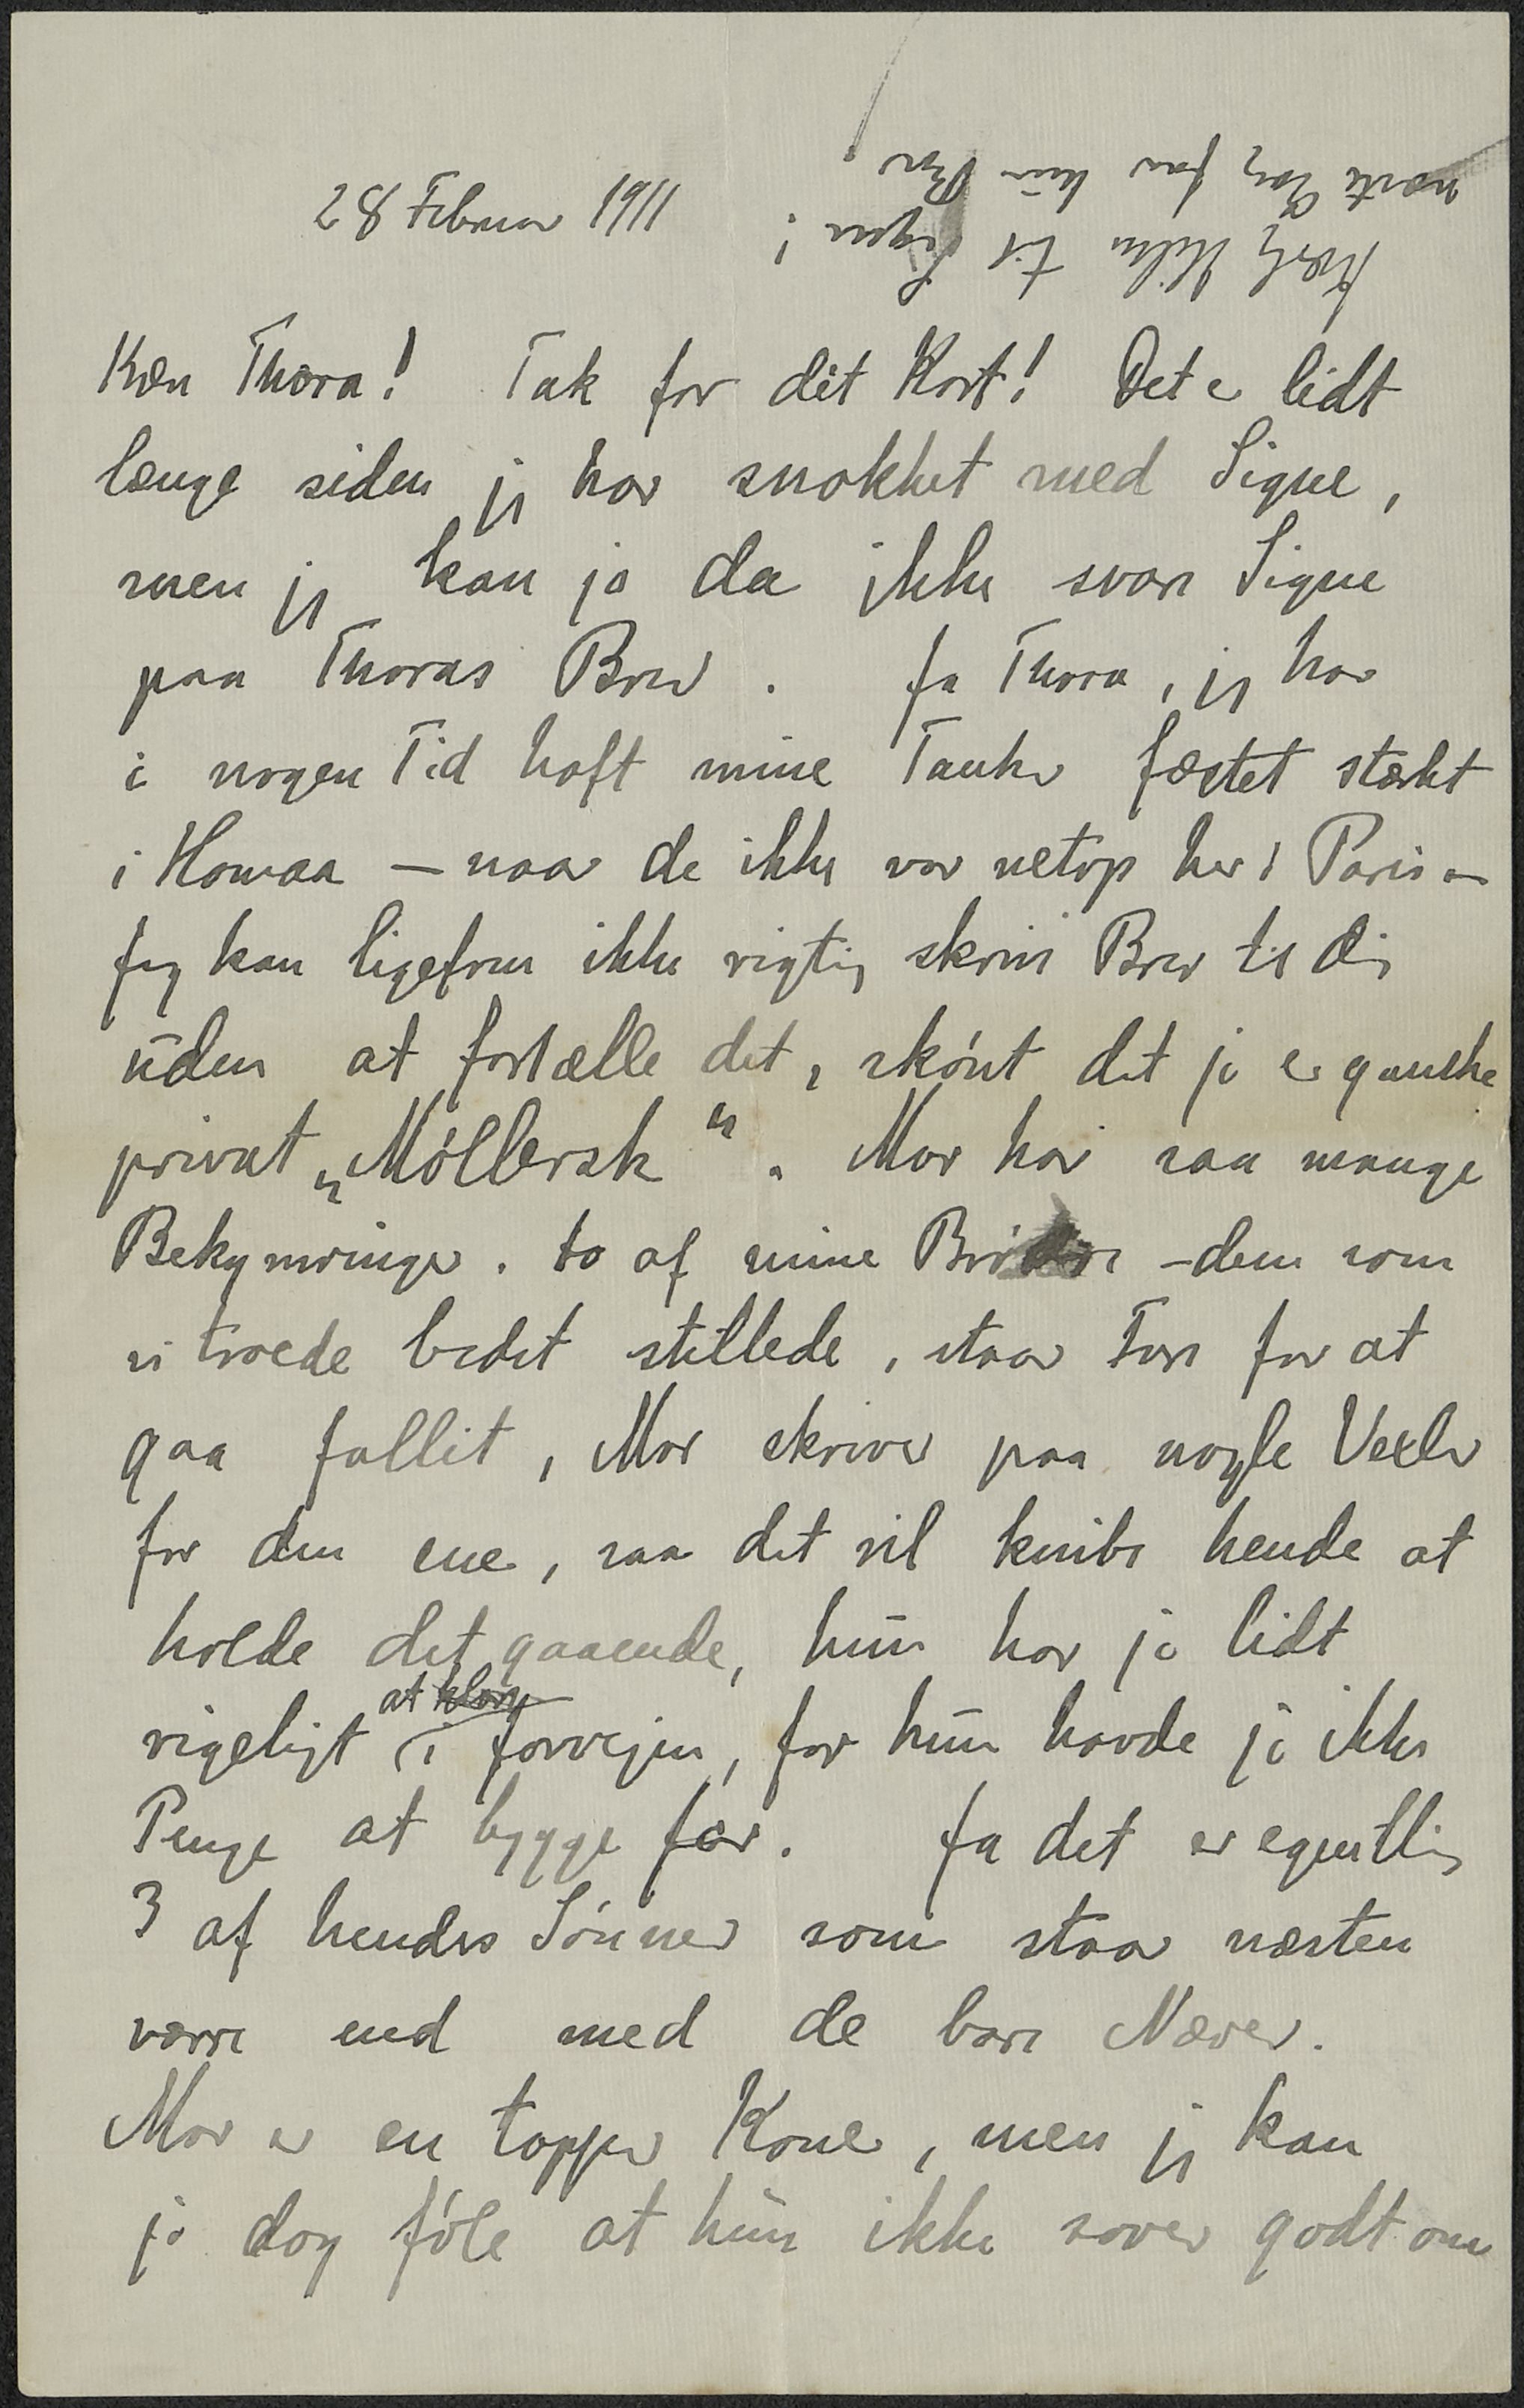 28 Februar 1911
Kære Thora! Tak for dit Kort! Det er lidt
længe siden jeg har snakket med Signe,
men jeg kan jo da ikke svare Signe
paa Thoras Brev. Ja Thora, jeg har
i nogen Tid haft mine Tanker fæstet stærkt
i Homaa – naar de ikke var netop her i Paris –
Jeg kan ligefrem ikke rigtig skrive Brev til dig
uden at fortælle det, skönt det jo er ganske
privat „Möllersk". Mor har saa mange
Bekymringer. to af mine Brödre – dem som
vi troede bedst stillede, staar Fare for at
gaa fallit, Mor skriver paa nogle Vexler
for den ene, saa det vil knibe hende at
holde det gaaende, hun har jo lidt
rigeligt at klare i forvejen, for hun havde jo ikke
Penge at bygge for. Ja det er egentlig
3 af hendes Sönner som staar næsten
værre end med de bare Næver.
Mor er en tapper Kone, men jeg kan
jo dog föle at hun ikke sover godt om
Kærlig Hilsen til Signe!
næste Gang faar hun Brev